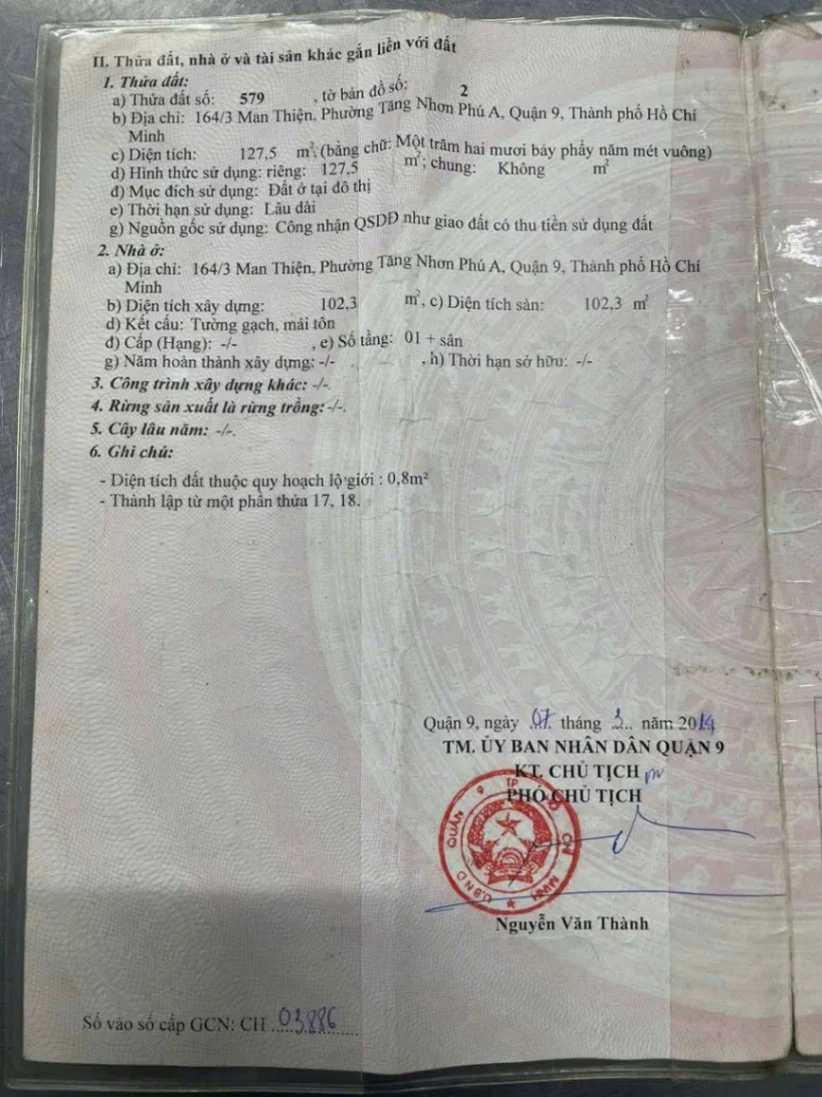 II. Thửa đất, nhà ở và tài sản khác gắn liền với đất
1. Thửa đất:
a) Thửa đất số: 579 , tờ bản đồ số: 2
b) Địa chỉ: 164/3 Man Thiện, Phường Tăng Nhơn Phú A, Quận 9, Thành phố Hồ Chí
Minh
c) Diện tích: 127,5 m², (bằng chữ: Một trăm hai mươi bảy phẩy năm mét vuông)
d) Hình thức sử dụng: riêng: 127,5 m²; chung: Không m²
đ) Mục đích sử dụng: Đất ở tại đô thị
e) Thời hạn sử dụng: Lâu dài
g) Nguồn gốc sử dụng: Công nhận QSDĐ như giao đất có thu tiền sử dụng đất
2. Nhà ở:
a) Địa chỉ: 164/3 Man Thiện, Phường Tăng Nhơn Phú A, Quận 9, Thành phố Hồ Chí
Minh
b) Diện tích xây dựng: 102,3 m², c) Diện tích sàn: 102,3 m²
d) Kết cấu: Tường gạch, mái tôn
đ) Cấp (Hạng): -/- , e) Số tầng: 01 + sân
g) Năm hoàn thành xây dựng: -/- , h) Thời hạn sở hữu: -/-
3. Công trình xây dựng khác: -/-.
4. Rừng sản xuất là rừng trồng: -/-.
5. Cây lâu năm: -/-.
6. Ghi chú:
- Diện tích đất thuộc quy hoạch lộ giới : 0,8m²
- Thành lập từ một phần thửa 17, 18.
Quận 9, ngày 07 tháng 3 năm 2014
TM. ỦY BAN NHÂN DÂN QUẬN 9
KT. CHỦ TỊCH
PHÓ CHỦ TỊCH
U.B.N.D QUẬN 9 TP HỒ CHÍ MINH
Nguyễn Văn Thành
Số vào sổ cấp GCN: CH 03886